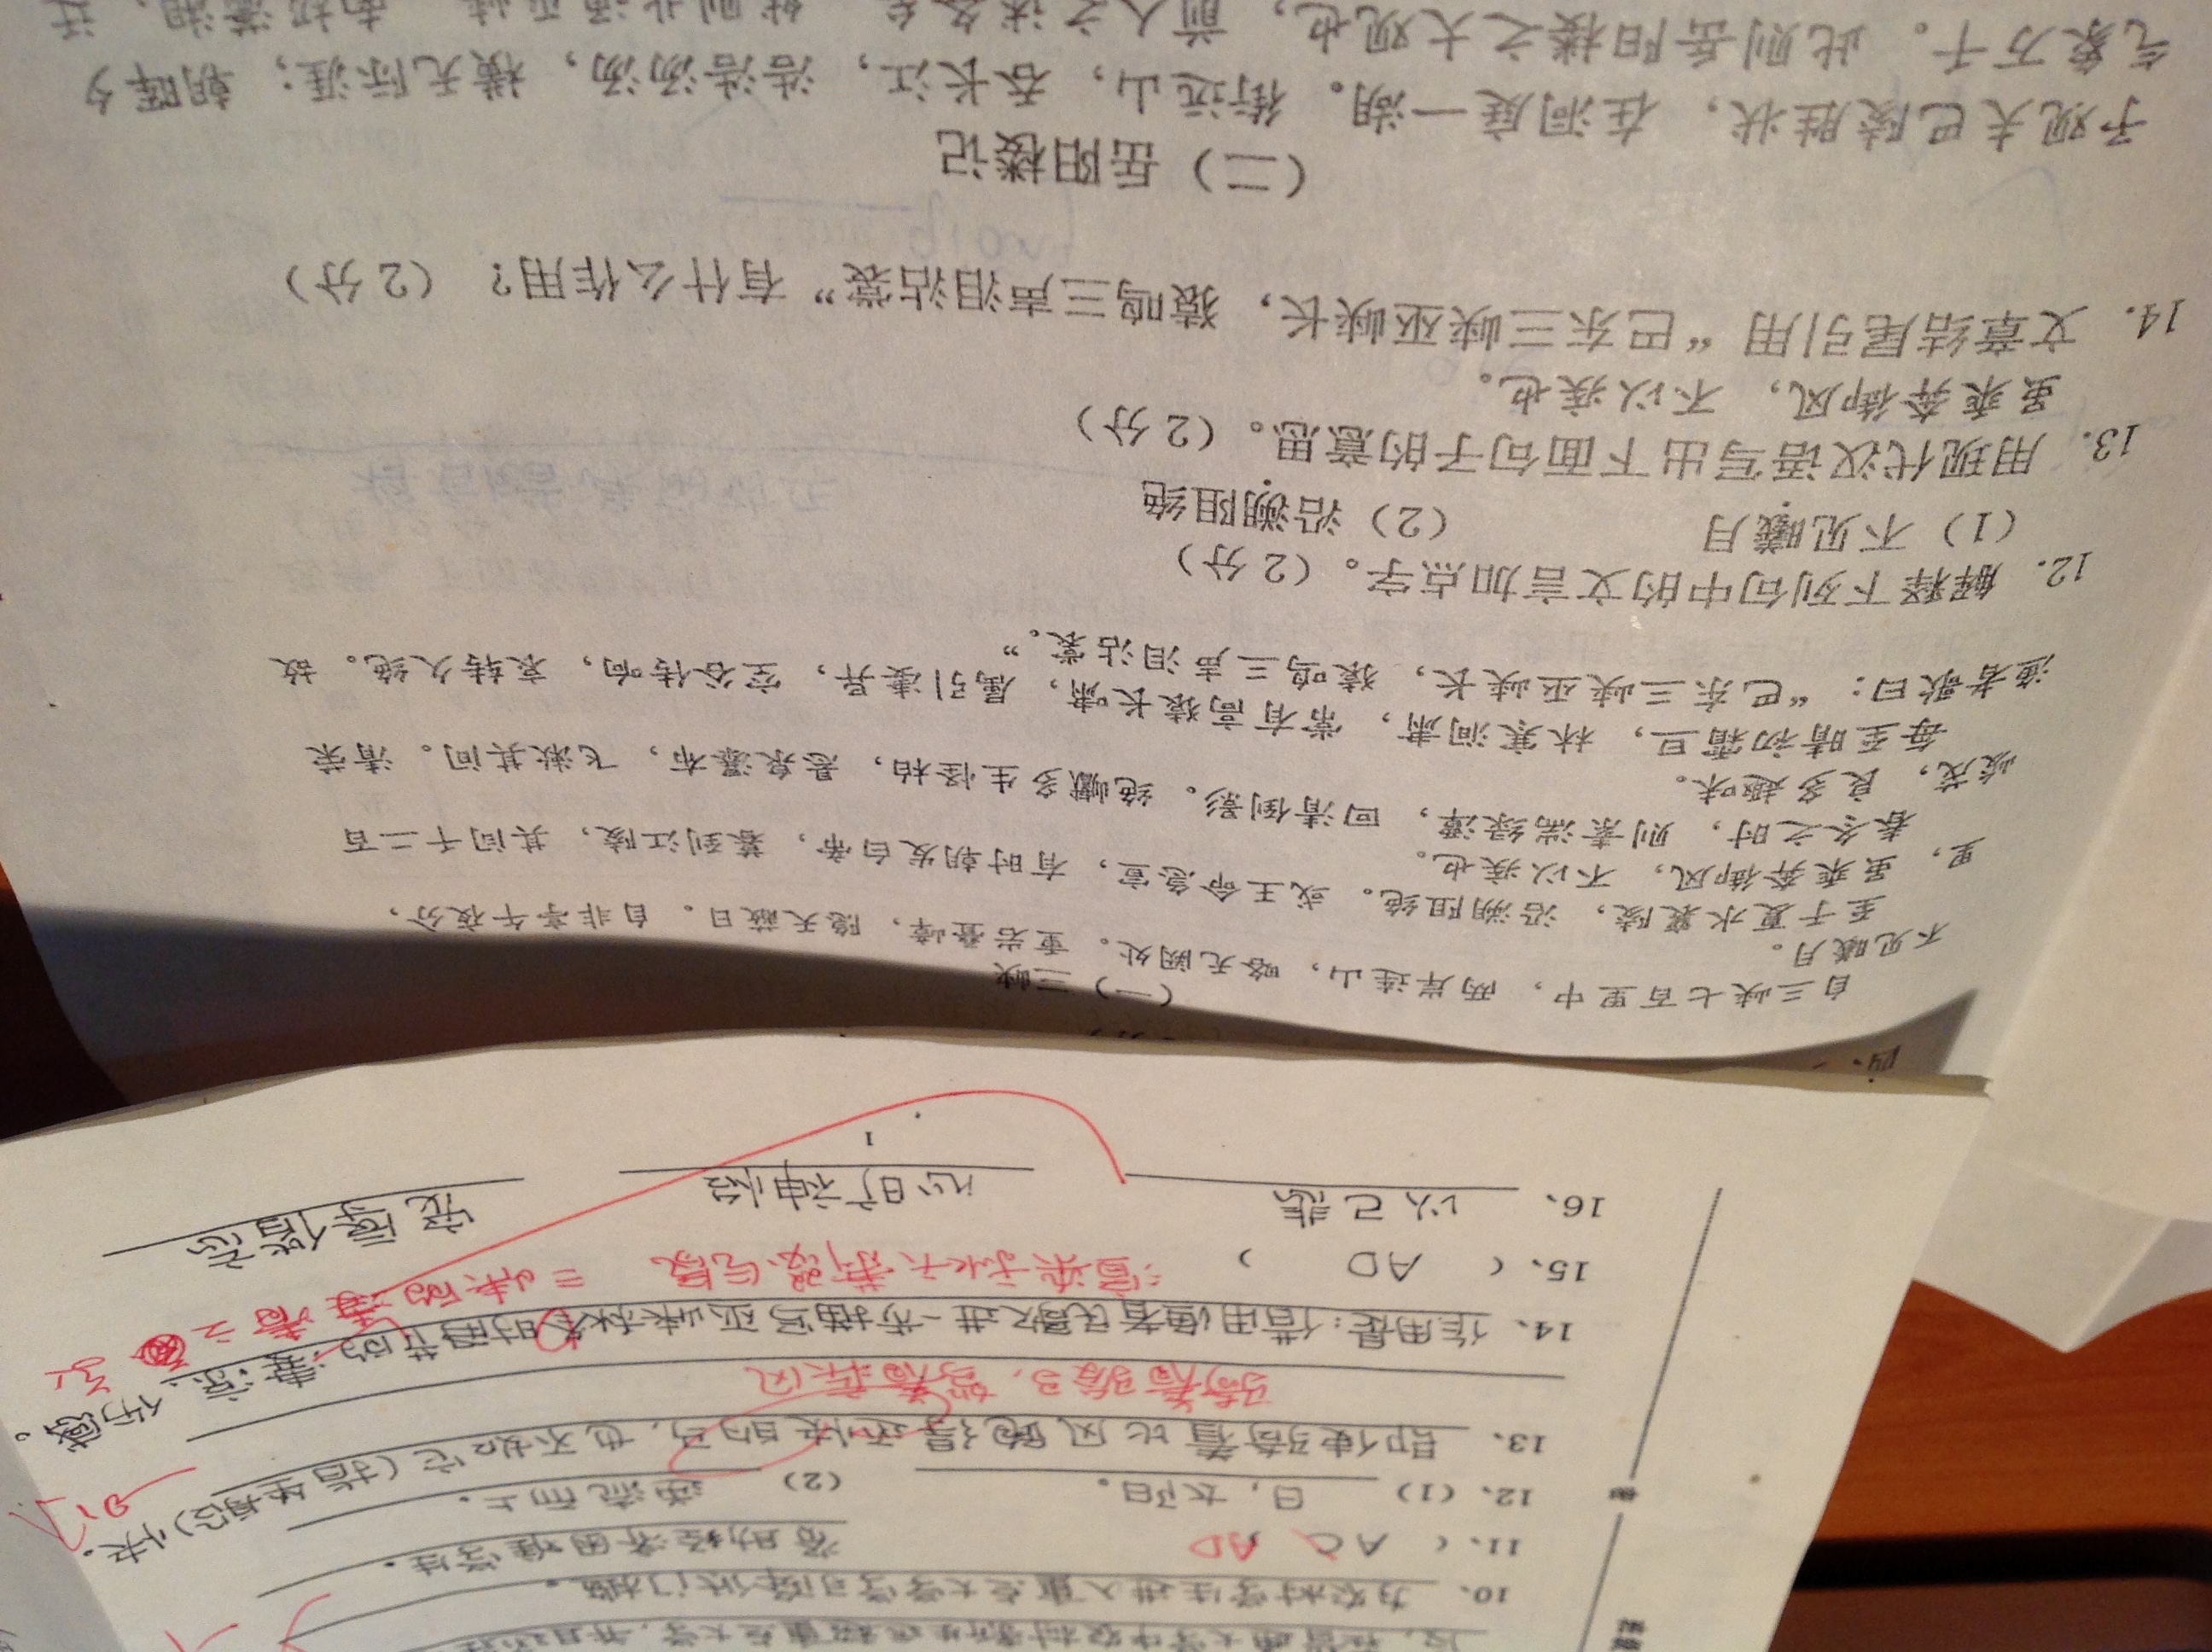 在普通大学中农村新生远超重点大学,并且还在
10、为农村学生进入重点大学学习降低门槛。
11、( AC AD 资助经济困难学生.
12、(1) 日,太阳. (2) 逆流而上.
13、即使骑着比风跑得还快的马,也不如它(指坐船)快.
骑着骏马,驾着疾风
14、作用是:借用渔者民歌进一步描写巫峡秋冬时节的凄凉、伤感。
15、( AD ) 渲染秋天萧瑟气氛 三峡的凄清之景
16、以己悲 心旷神怡 宠辱偕忘
1
四、
(一)三峡
自三峡七百里中,两岸连山,略无阙处。重岩叠嶂,隐天蔽日。自非亭午夜分,
不见曦月。
至于夏水襄陵,沿溯阻绝。或王命急宣,有时朝发白帝,暮到江陵,其间千二百
里,虽乘奔御风,不以疾也。
春冬之时,则素湍绿潭,回清倒影。绝巘多生怪柏,悬泉瀑布,飞漱其间。清荣
峻茂,良多趣味。
每至晴初霜旦,林寒涧肃,常有高猿长啸,属引凄异,空谷传响,哀转久绝。故
渔者歌曰:“巴东三峡巫峡长,猿鸣三声泪沾裳。”
12. 解释下列句中的文言加点字。(2 分)
(1)不见曦月 (2)沿溯阻绝
13. 用现代汉语写出下面句子的意思。(2 分)
虽乘奔御风,不以疾也。
14. 文章结尾引用“巴东三峡巫峡长,猿鸣三声泪沾裳”有什么作用?(2 分)
(二)岳阳楼记
予观夫巴陵胜状,在洞庭一湖。衔远山,吞长江,浩浩汤汤,横无际涯;朝晖夕
气象万千。此则岳阳楼之大观也,前人之述备矣。然则北通巫峡,南极潇湘,迁